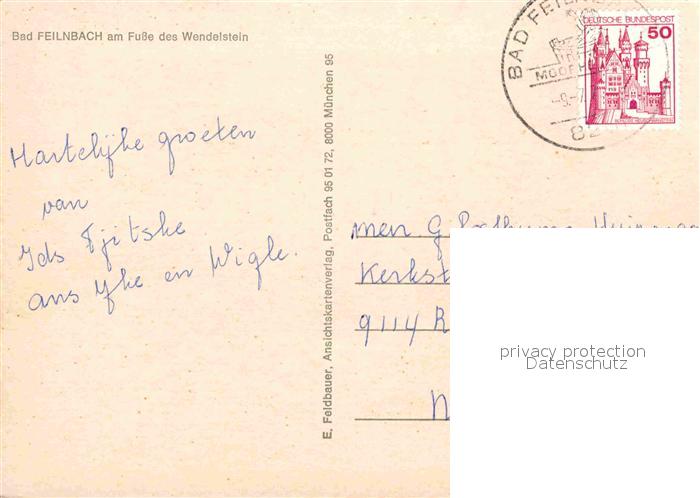 Bad FEILNBACH am Fuße des Wendelstein
Hartelijke groeten
van
Ids Tjitske
ans Yke en Wigle.
E. Feldbauer, Ansichtskartenverlag, Postfach 95 01 72, 8000 München 95
BAD FEILN
MOOR
DEUTSCHE BUNDESPOST
50
men. G. Posthuma
Kerkst
9114 R
N
privacy protection
Datenschutz